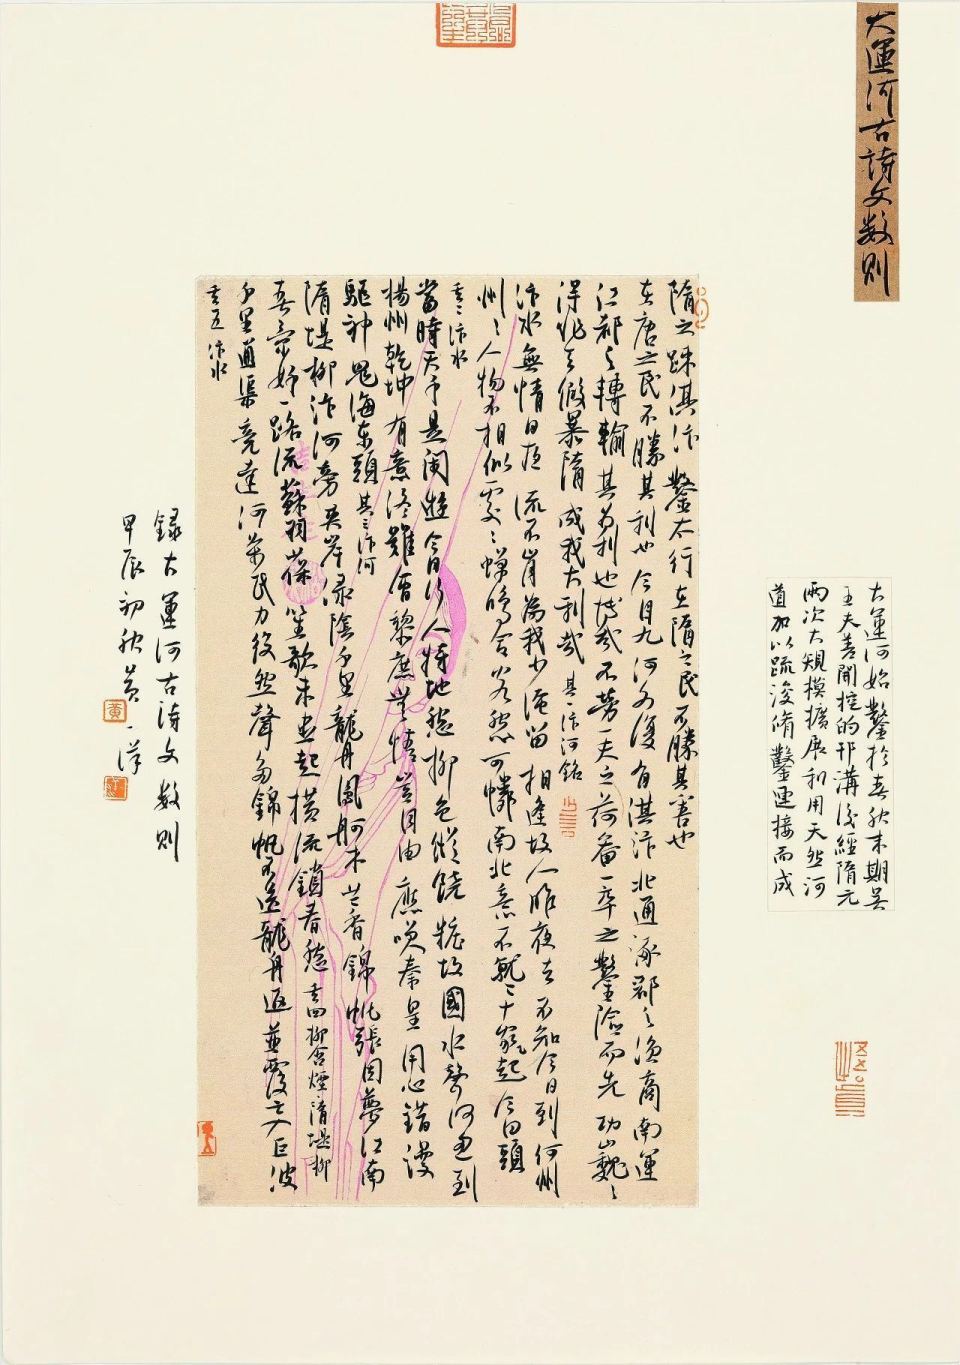 大運河古詩文數則
大運河始鑿於春秋末期吳
王夫差開挖的邗溝後經隋元
兩次大規模擴展利用天然河
道加以疏浚脩鑿連接而成
隋之疏淇汴鑿太行在隋之民不勝其害也
在唐之民不勝其利也今自九河外復有淇汴北通涿郡之漁商南運
江郡之轉輸其為利也博哉不勞一夫之荷畚一卒之鑿險而先功巍巍
得非天假暴隋成我大利哉 其一汴河銘
汴水無情日夜流不肯為我少淹留相逢故人昨夜去不知今日到何州
州州人物不相似處處蟬鳴令客愁可憐南北意不就二十起今白頭
其二汴水
當時天子是閑遊今日行人特地愁柳色縱饒粧故國水聲何忍到
揚州乾坤有意終難會黎庶無情豈自由應笑秦皇用心錯謾
驅神鬼海東頭 其三汴河
隋堤柳汴河旁夾岸綠陰千里龍舟鳳舸木蘭香錦帆張因夢江南
春景好一路流蘇羽葆笙歌未盡起橫流鎖春愁 其四柳含煙隋堤柳
千里通渠竟達河萬民力役怨聲多錦帆不逐龍舟返並覆亡人巨波
其五汴水
錄大運河古詩文數則
甲辰初秋黃一洋
黃